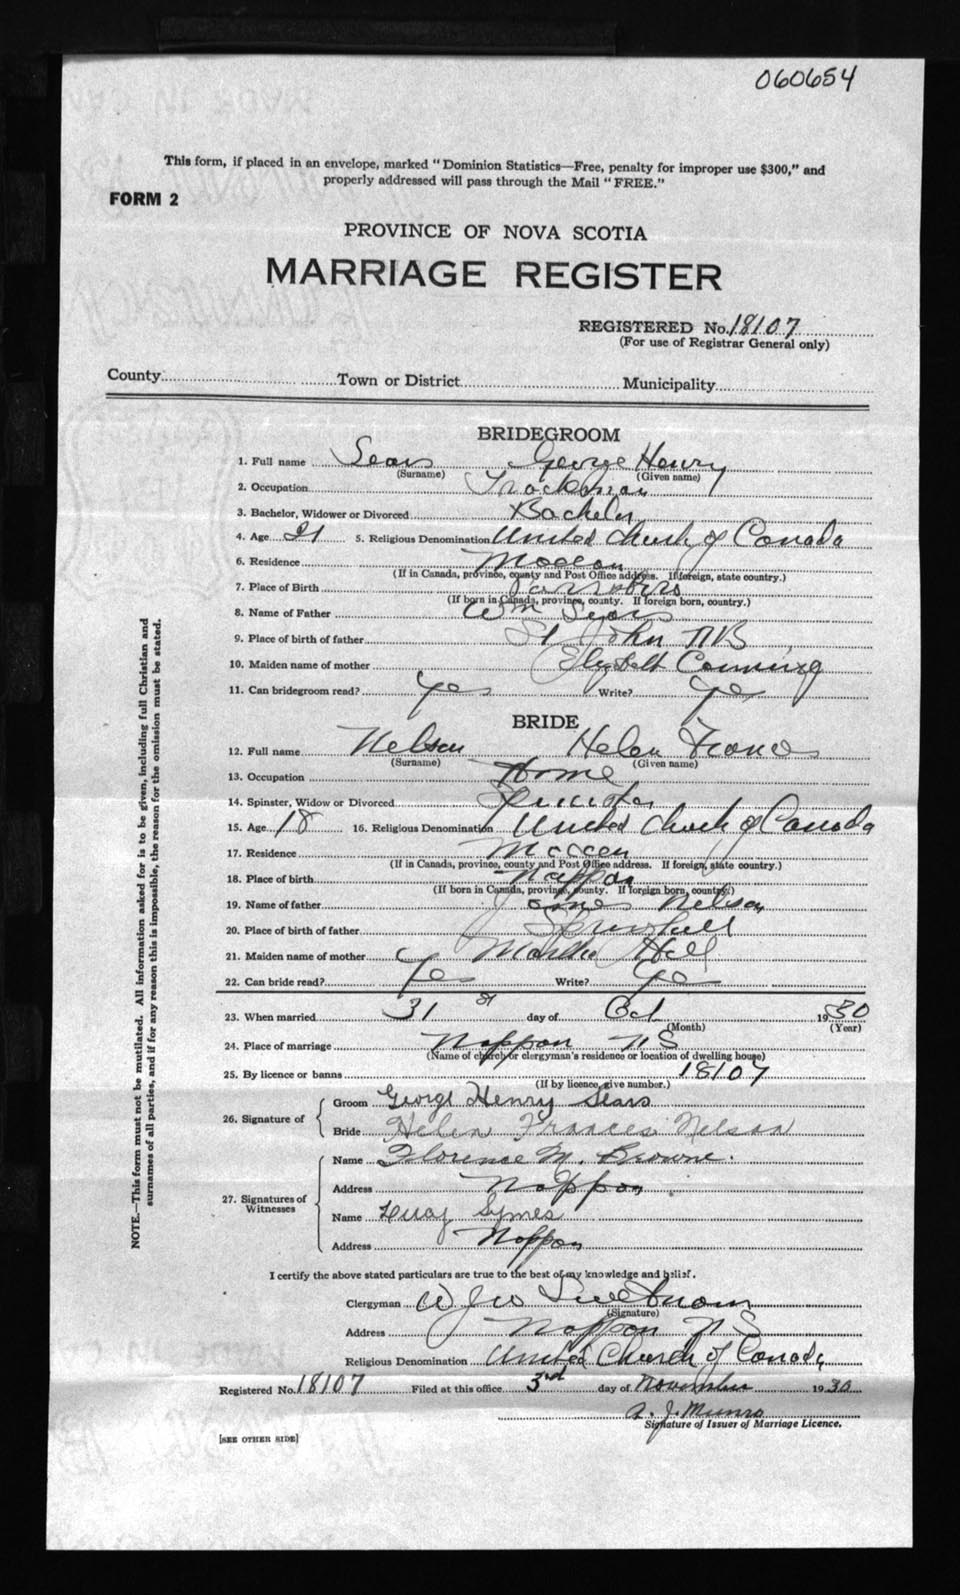 060654
This form, if placed in an envelope, marked "Dominion Statistics—Free, penalty for improper use $300," and
properly addressed will pass through the Mail "FREE."
FORM 2
PROVINCE OF NOVA SCOTIA
MARRIAGE REGISTER
REGISTERED No. 18107
(For use of Registrar General only)
County Town or District Municipality
BRIDEGROOM
1. Full name Sears George Henry
(Surname) (Given name)
2. Occupation Trackman
3. Bachelor, Widower or Divorced Bachelor
4. Age 21 5. Religious Denomination United Church of Canada
6. Residence Maccan
(If in Canada, province, county and Post Office address. If foreign, state country.)
7. Place of Birth Parrsboro
(If born in Canada, province, county. If foreign born, country.)
8. Name of Father Wm Sears
9. Place of birth of father St John NB
10. Maiden name of mother Canning
11. Can bridegroom read? Yes Write? Yes
BRIDE
12. Full name Nelson Helen Frances
(Surname) (Given name)
13. Occupation Home
14. Spinster, Widow or Divorced Spinster
15. Age 18 16. Religious Denomination United Church of Canada
17. Residence Maccan
(If in Canada, province, county and Post Office address. If foreign, state country.)
18. Place of birth Nappan
(If born in Canada, province, county. If foreign born, country.)
19. Name of father James Nelson
20. Place of birth of father Springhill
21. Maiden name of mother Martha Hall
22. Can bride read? Yes Write? Yes
23. When married 31st day of Oct 1930
(Month) (Year)
24. Place of marriage Nappan NS
(Name of church or clergyman's residence or location of dwelling house)
25. By licence or banns 18107
(If by licence, give number.)
26. Signature of Groom George Henry Sears
Bride Helen Frances Nelson
27. Signatures of Witnesses
Name Florence M. Browne.
Address Nappan
Name Symes
Address Nappan
I certify the above stated particulars are true to the best of my knowledge and belief.
Clergyman W J W
(Signature)
Address Nappan N S
Religious Denomination United Church of Canada
Registered No. 18107 Filed at this office 3rd day of November 1930
A. J. Munro
Signature of Issuer of Marriage Licence.
[SEE OTHER SIDE]
NOTE.—This form must not be mutilated. All information asked for is to be given, including full Christian and
surnames of all parties, and if for any reason this is impossible, the reason for the omission must be stated.